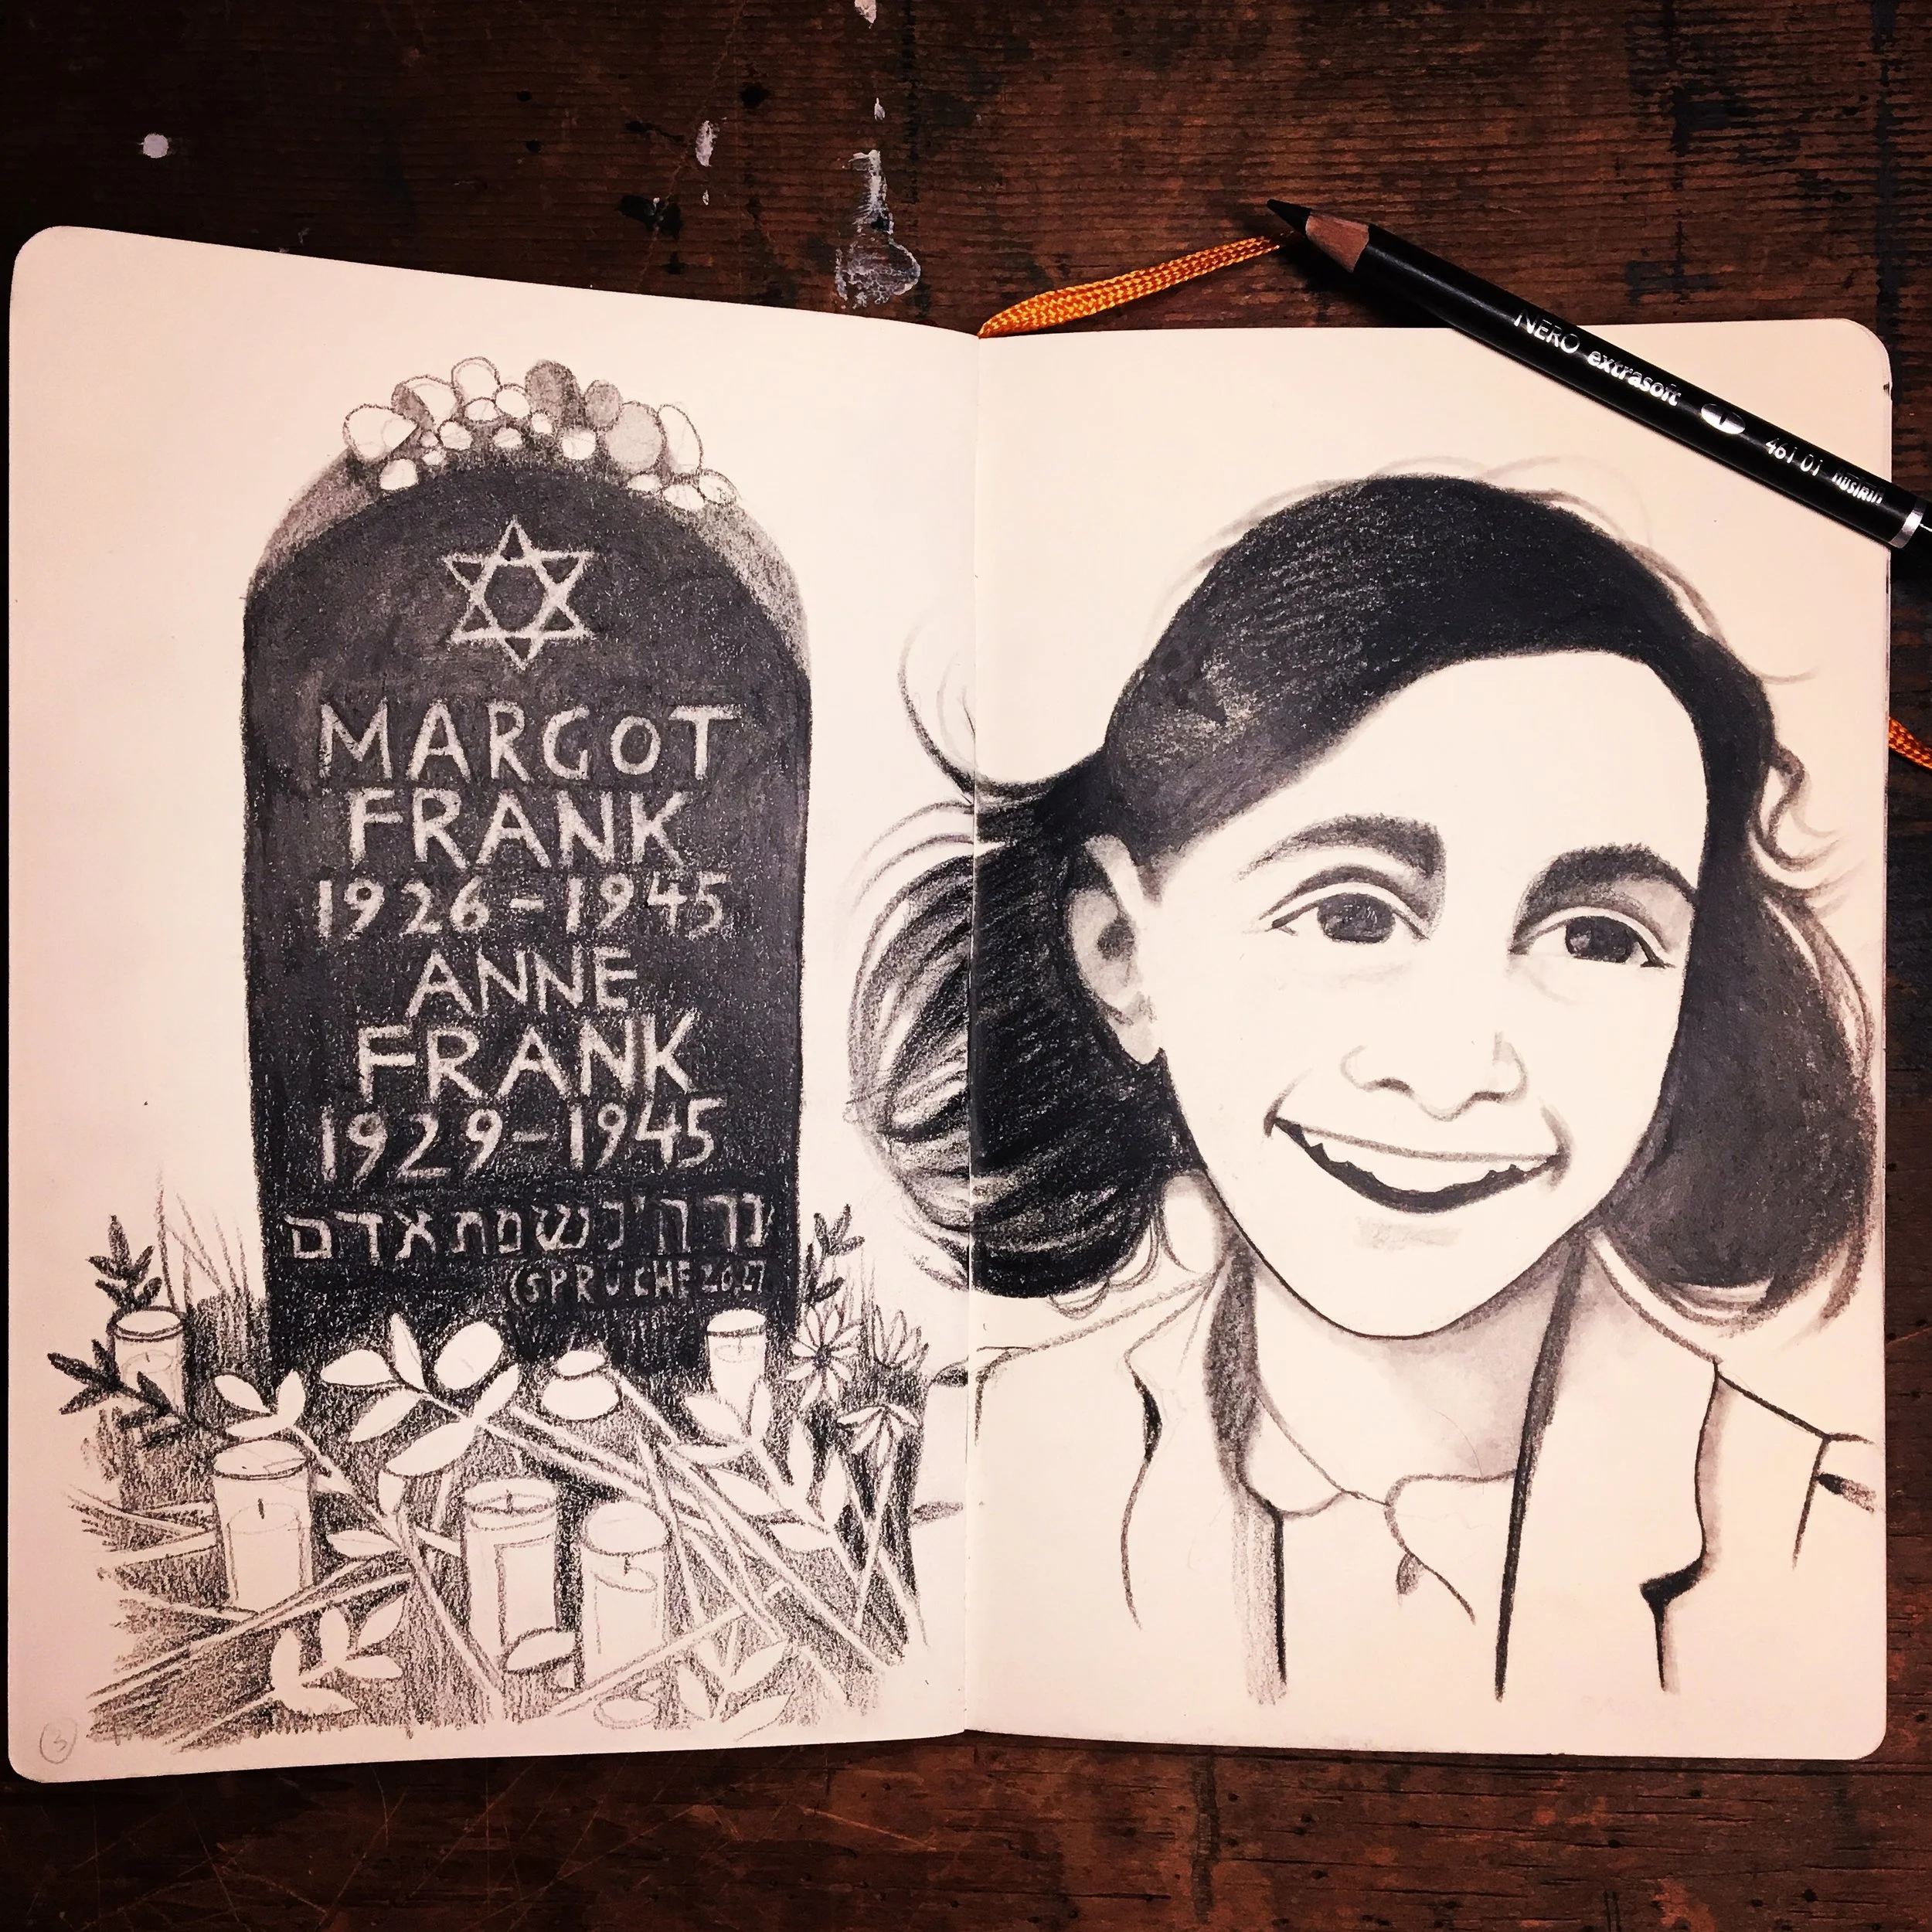 NERO extrasoft 461 01
MARGOT
FRANK
1926-1945
ANNE
FRANK
1929-1945
נר ה' נשמת אדם
(SPRÜCHE 20,27
3